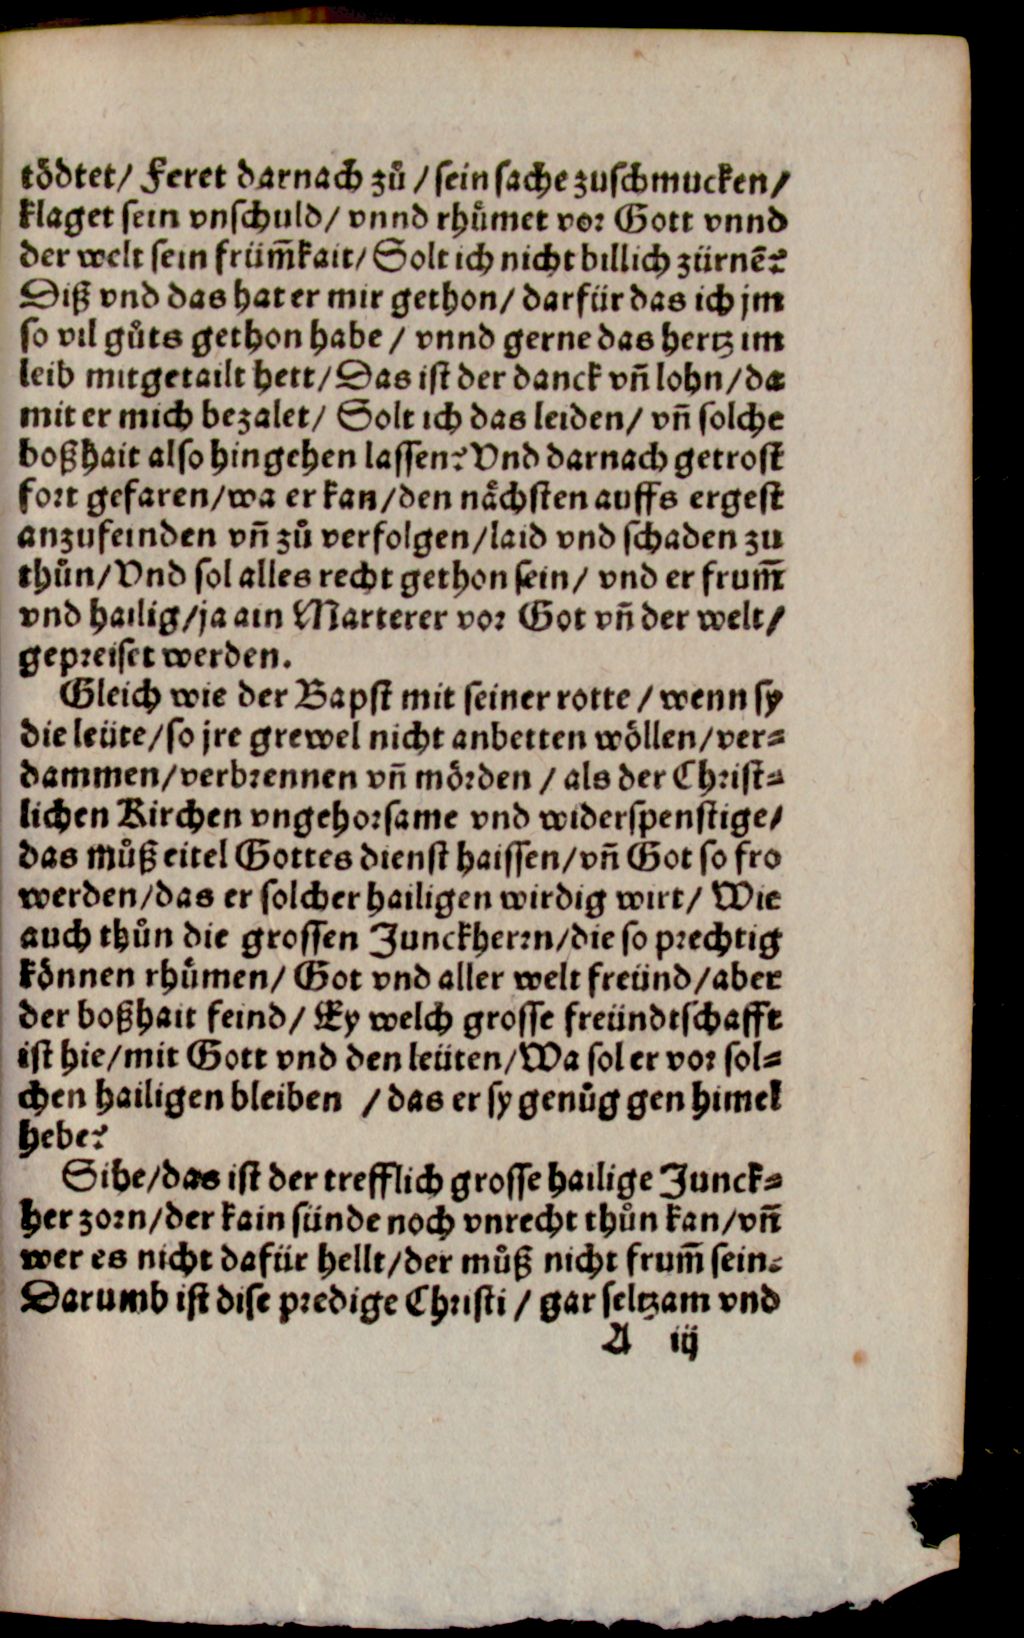 tödtet/ Feret darnach zů / sein sache zuschmucken/
klaget sein vnschuld/ vnnd rhůmet vor Gott vnnd
der welt sein früm̃kait/ Solt ich nicht billich zürnẽ?
Diß vnd das hat er mir gethon/ darfür das ich jm
so vil gůts gethon habe / vnnd gerne das hertz im
leib mitgetailt hett/ Das ist der danck vñ lohn/ da
mit er mich bezalet/ Solt ich das leiden/ vñ solche
boßhait also hingehen lassen? Vnd darnach getrost
fort gefaren/ wa er kan/ den nåchsten auffs ergest
anzufeinden vñ zů verfolgen/ laid vnd schaden zu
thůn/ Vnd sol alles recht gethon sein/ vnd er frum̃
vnd hailig/ ja ain Marterer vor Got vñ der welt/
gepreiset werden.
Gleich wie der Bapst mit seiner rotte / wenn sy
die leüte/ so jre grewel nicht anbetten wöllen/ ver⸗
dammen/ verbrennen vñ mörden / als der Christ⸗
lichen Kirchen vngehorsame vnd widerspenstige/
das můß eitel Gottes dienst haissen/ vñ Got so fro
werden/ das er solcher hailigen wirdig wirt/ Wie
auch thůn die grossen Junckherrn/ die so prechtig
können rhůmen/ Got vnd aller welt freünd/ aber
der boßhait feind/ Ey welch grosse freündtschafft
ist hie/ mit Gott vnd den leüten/ Wa sol er vor sol⸗
chen hailigen bleiben / das er sy genůg gen himel
hebe?
Sihe/ das ist der trefflich grosse hailige Junck⸗
her zorn/ der kain sünde noch vnrecht thůn kan/ vñ
wer es nicht dafür hellt/ der můß nicht frum̃ sein.
Darumb ist dise predige Christi / gar seltzam vnd
A iij